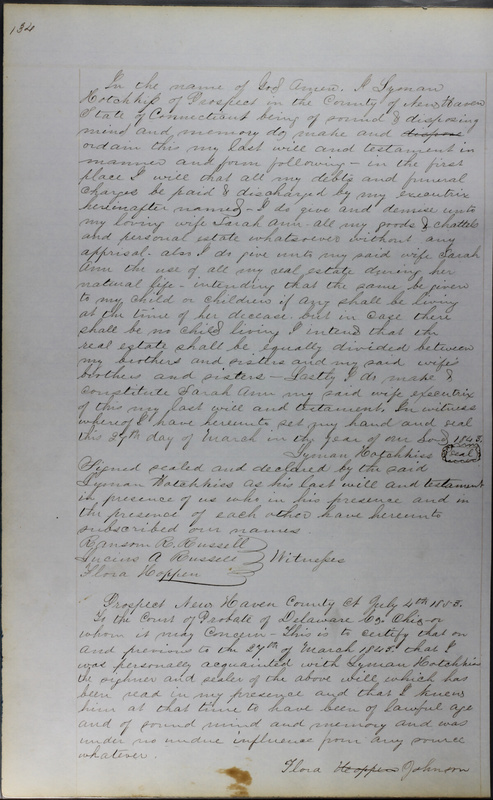 134
In the name of God Amen. I Lyman
Hotchkiss of Prospect in the County of New Haven
State of Connecticut being of sound & disposing
mind and memory do make and dispose
ordain this my last will and testament in
manner and form following - in the first
place I will that all my debts and funeral
charges be paid & discharged by my executrix
hereinafter named - I do give and demise unto
my loving wife Sarah Ann all my goods & chattels
and personal estate whatsoever without any
apprisal. also I do give unto my said wife Sarah
Ann the use of all my real estate during her
natural life - intending that the same be given
to my child or children if any shall be living
at the time of her decease. but in case there
shall be no child living I intend that the
real estate shall be equally divided between
my brothers and sisters and my said wife's
brothers and sisters - Lastly I do make &
constitute Sarah Ann my said wife executrix
of this my last will and testament. In witness
whereof I have hereunto set my hand and seal
this 27th day of March in the year of our Lord 1843.
Lyman Hotchkiss Seal
Signed sealed and declared by the said
Lyman Hotchkiss as his last will and testament
in presence of us who in his presence and in
the presence of each other have hereunto
subscribed our names.
Ransom R. Russell
Lucius A Russell Witnesses
Flora Hoppen
Prospect New Haven County Ct July 4th 1853.
To the Court of Probate of Delaware Co. Ohio or
whom it may Concern - This is to certify that on
and previous to the 27th of March 1843. that I
was personally acquainted with Lyman Hotchkiss
the signer and sealer of the above will, which has
been read in my presence and that I knew
him at that time to have been of lawful age
and of sound mind and memory and was
under no undue influence from any source
whatever.
Flora Hoppen Johnson